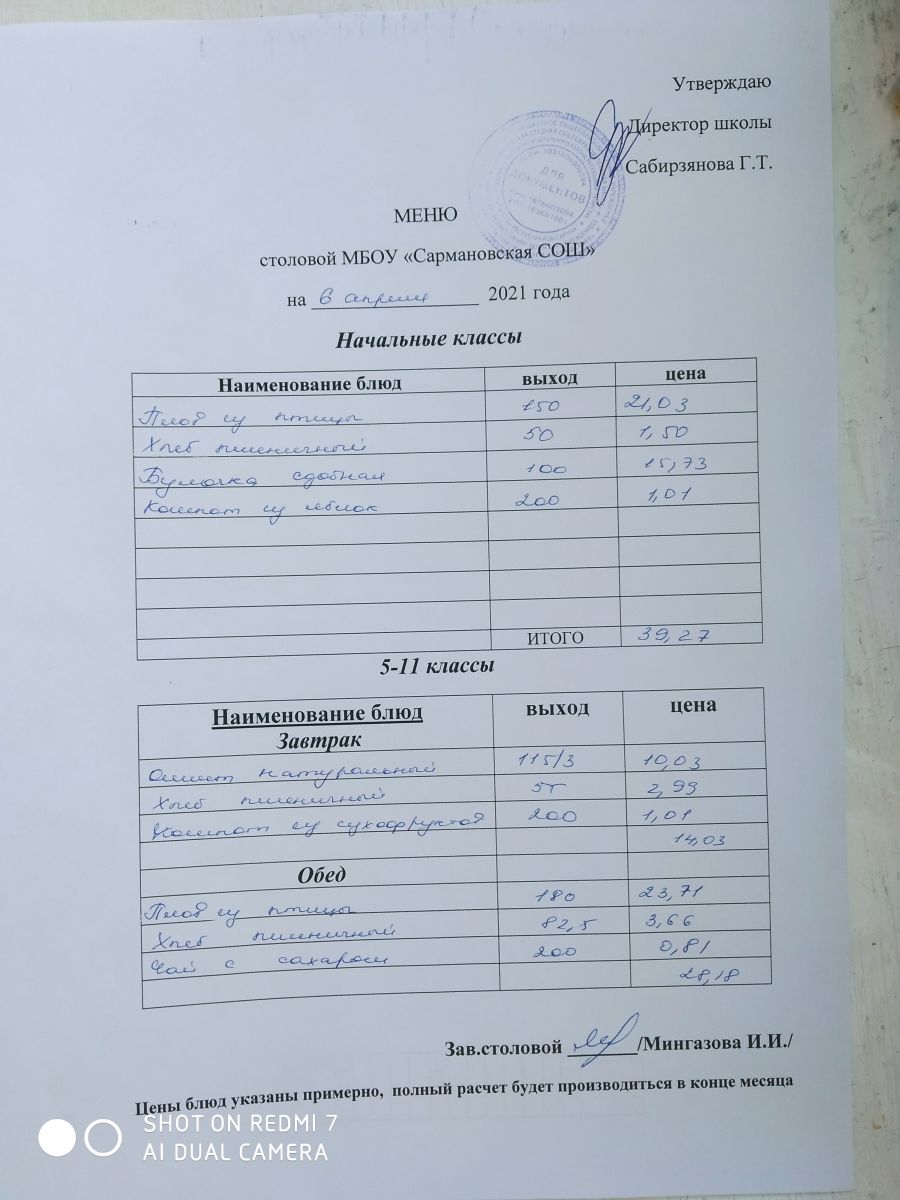 Утверждаю
Директор школы
Сабирзянова Г.Т.
ДЛЯ
ДОКУМЕНТОВ
МЕНЮ
столовой МБОУ «Сармановская СОШ»
на 6 апреля 2021 года
Начальные классы
Наименование блюд выход цена
Плов из птицы 150 21,03
Хлеб пшеничный 50 1,50
Булочка сдобная 100 15,73
Компот из яблок 200 1,01
ИТОГО 39,27
5-11 классы
Наименование блюд выход цена
Завтрак
Омлет натуральный 115/3 10,03
Хлеб пшеничный 2,99
Компот из сухофруктов 200 1,01
14,03
Обед
Плов из птицы 180 23,71
Хлеб пшеничный 82,5 3,66
Чай с сахаром 200 0,81
28,18
Зав.столовой /Мингазова И.И./
Цены блюд указаны примерно, полный расчет будет производиться в конце месяца
SHOT ON REDMI 7
AI DUAL CAMERA